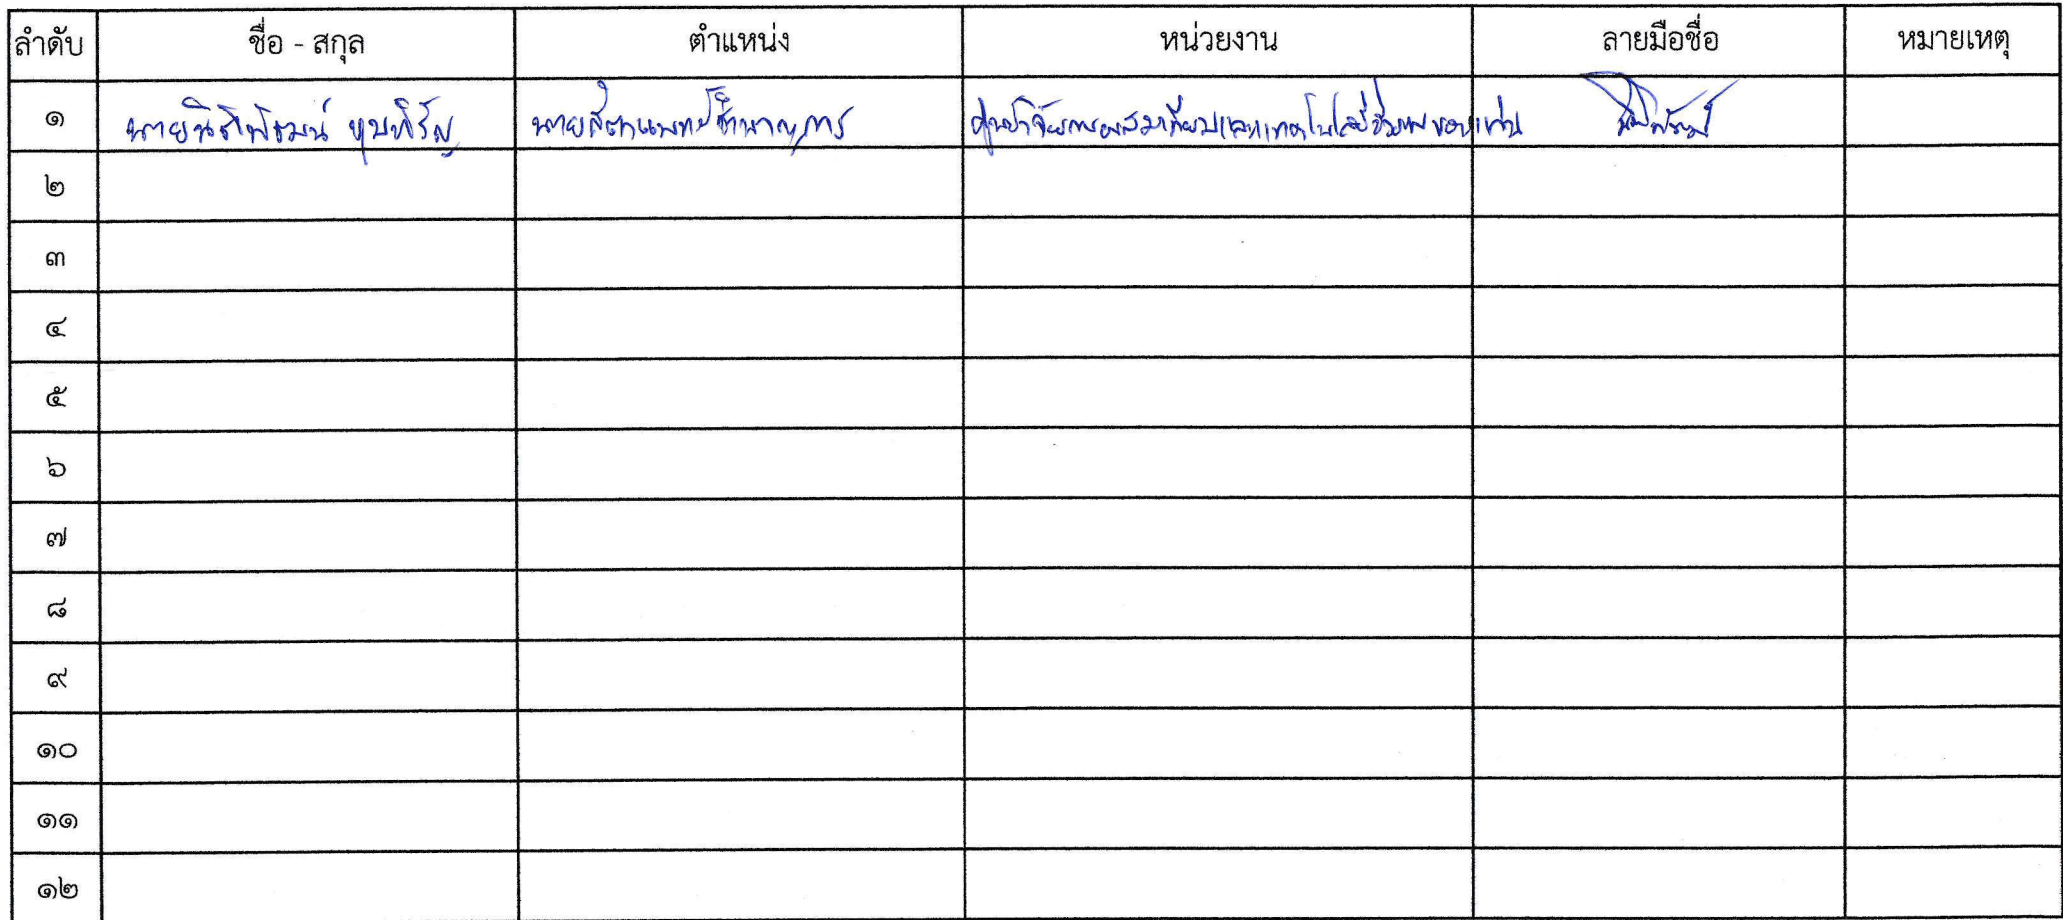 ลำดับ ชื่อ - สกุล ตำแหน่ง หน่วยงาน ลายมือชื่อ หมายเหตุ
๑ นายสัตวแพทย์ชำนาญการ ศูนย์วิจัยการผสมเทียมและเทคโนโลยีชีวภาพขอนแก่น
๒
๓
๔
๕
๖
๗
๘
๙
๑๐
๑๑
๑๒